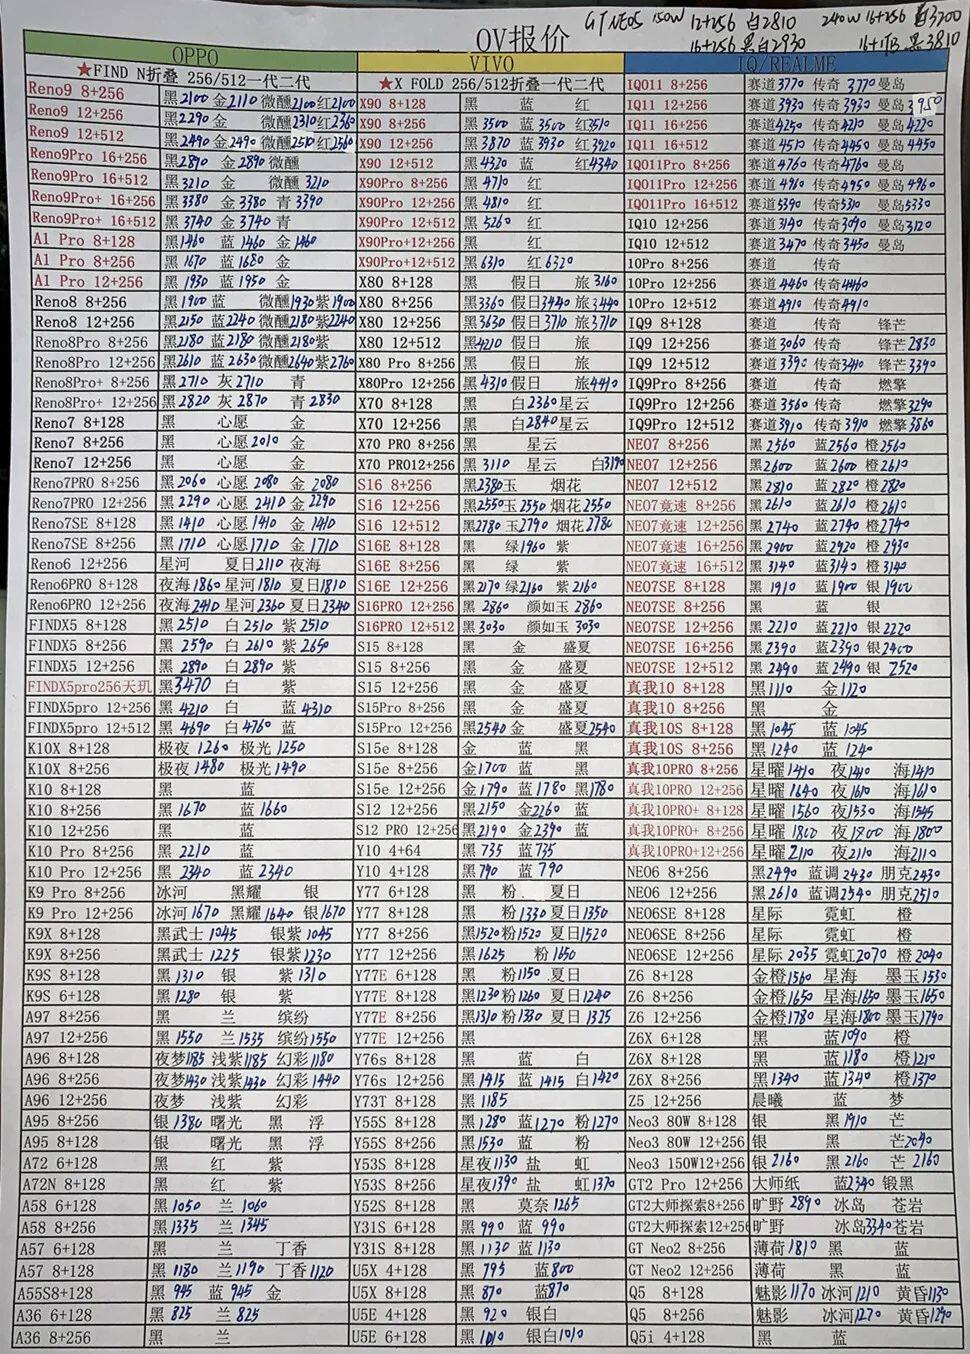 GT NEO5 150W 12+256 白2810 240W 16+256 白3200
OV报价 16+256 黑白2930 16+1TB 黑3810
OPPO VIVO IQ/REALME
★FIND N折叠 256/512一代二代 ★X FOLD 256/512折叠一代二代 IQ011 8+256 赛道3770 传奇 3770曼岛
Reno9 8+256 黑2100金2110微醺2100红2100 X90 8+128 黑 蓝 红 IQ11 12+256 赛道3930 传奇3930 曼岛3950
Reno9 12+256 黑2290金 微醺2310红2360 X90 8+256 黑3500 蓝3500 红3510 IQ11 16+256 赛道4250 传奇4210 曼岛4220
Reno9 12+512 黑2490金2490微醺2510红2560 X90 12+256 黑3870 蓝3930 红3920 IQ11 16+512 赛道4510 传奇4450 曼岛4450
Reno9Pro 16+256 黑2890 金2890微醺 X90 12+512 黑4320 蓝 红4340 IQ011Pro 8+256 赛道4760 传奇4760 曼岛
Reno9Pro 16+512 黑3210 金 微醺3210 X90Pro 8+256 黑4710 红 IQ011Pro 12+256 赛道4960 传奇4950 曼岛4960
Reno9Pro+ 16+256 黑3380 金3380 青3390 X90Pro 12+256 黑4810 红 IQ011Pro 16+512 赛道5390 传奇5310 曼岛5330
Reno9Pro+ 16+512 黑3740 金3740 青 X90Pro 12+512 黑5260 红 IQ10 12+256 赛道3140 传奇3090 曼岛3120
A1 Pro 8+128 黑1460 蓝1460 金1460 X90Pro+12+256 黑 红 IQ10 12+512 赛道3470 传奇3450 曼岛
A1 Pro 8+256 黑1670 蓝1680 金 X90Pro+12+512 黑6310 红6320 10Pro 8+256 赛道 传奇
A1 Pro 12+256 黑1930 蓝1950 金 X80 8+128 黑 假日 旅3160 10Pro 12+256 赛道4460传奇4460
Reno8 8+256 黑1900蓝 微醺1930紫1900 X80 8+256 黑3360假日3440旅3440 10Pro 12+512 赛道4910传奇4910
Reno8 12+256 黑2150 蓝2240微醺2180紫2240 X80 12+256 黑3630假日3710旅3710 IQ9 8+128 赛道 传奇 锋芒
Reno8Pro 8+256 黑2180 蓝2180微醺2180紫 X80 12+512 黑4210假日 旅 IQ9 12+256 赛道3060 传奇 锋芒2830
Reno8Pro 12+256 黑2610 蓝2630微醺2640紫2760 X80 Pro 8+256 黑 假日 旅 IQ9 12+512 赛道3390 传奇3410 锋芒3390
Reno8Pro+ 8+256 黑2710 灰2710 青 X80Pro 12+256 黑4310假日 旅4410 IQ9Pro 8+256 赛道 传奇 燃擎
Reno8Pro+ 12+256 黑2820 灰2870 青2830 X70 8+128 黑 白2360星云 IQ9Pro 12+256 赛道3560 传奇 燃擎3290
Reno7 8+128 黑 心愿 金 X70 12+256 黑 白2840星云 IQ9Pro 12+512 赛道3910 传奇3910 燃擎3860
Reno7 8+256 黑 心愿2010金 X70 PRO 8+256 黑 星云 NE07 8+256 黑2560 蓝2560橙2560
Reno7 12+256 黑 心愿 金 X70 PRO12+256 黑3110 星云 白3190 NE07 12+256 黑2600 蓝2600橙2610
Reno7PRO 8+256 黑2060 心愿2080 金2080 S16 8+256 黑2380玉 烟花 NE07 12+512 黑2810 蓝2820橙2820
Reno7PRO 12+256 黑2290 心愿2410金2290 S16 12+256 黑2550玉2550烟花2550 NE07竞速 8+256 黑2610 蓝2610橙2610
Reno7SE 8+128 黑1410 心愿1410 金1410 S16 12+512 黑2780玉2790 烟花2780 NE07竞速 12+256 黑2740 蓝2740橙2740
Reno7SE 8+256 黑1710 心愿1710 金1710 S16E 8+128 黑 绿1960 紫 NE07竞速 16+256 黑2900 蓝2920橙2930
Reno6 12+256 星河 夏日2110夜海 S16E 8+256 黑 绿 紫 NE07竞速 16+512 黑3140 蓝3140橙3140
Reno6PRO 8+128 夜海1860星河1810 夏日1810 S16E 12+256 黑2170绿2160 紫2160 NE07SE 8+128 黑1910 蓝1900银1900
Reno6PRO 12+256 夜海2410星河2360夏日2340 S16PRO 12+256 黑2860 颜如玉2860 NE07SE 8+256 黑 蓝 银
FINDX5 8+128 黑2510 白2510 紫2510 S16PRO 12+512 黑3030 颜如玉3030 NE07SE 12+256 黑2210 蓝2210银2220
FINDX5 8+256 黑2590 白2610 紫2650 S15 8+128 黑 金 盛夏 NE07SE 16+256 黑2390 蓝2390银2400
FINDX5 12+256 黑2890 白2890 紫 S15 8+256 黑 金 盛夏 NE07SE 12+512 黑2490 蓝2490银2520
FINDX5pro256天玑 黑3470 白 紫 S15 12+256 黑 金 盛夏 真我10 8+128 黑1110 金1120
FINDX5pro 12+256 黑4210 白 蓝4310 S15Pro 8+256 黑 金 盛夏 真我10 8+256 黑 金
FINDX5pro 12+512 黑4690 白4760 蓝 S15Pro 12+256 黑2540金 盛夏2540 真我10S 8+128 黑1045 蓝1045
K10X 8+128 极夜1260 极光1250 S15e 8+128 金 蓝 黑 真我10S 8+256 黑1240 蓝1240
K10X 8+256 极夜1480 极光1490 S15e 8+256 金1700 蓝 黑 真我10PRO 8+256 星曜1410 夜1410 海1410
K10 8+128 黑 蓝 S15e 12+256 金1790 蓝1780 黑1780 真我10PRO 12+256 星曜1640 夜1610 海1610
K10 8+256 黑1670 蓝1660 S12 12+256 黑2150 金2260蓝 真我10PRO+ 8+128 星曜1560 夜1530 海1545
K10 12+256 黑 蓝 S12 PRO 12+256 黑2190 金2390 蓝 真我10PRO+ 8+256 星曜1800 夜1800 海1800
K10 Pro 8+256 黑2210 蓝 Y10 4+64 黑735 蓝735 真我10PRO+12+256 星曜2110 夜2110 海2110
K10 Pro 12+256 黑2340 蓝2340 Y10 4+128 黑790 蓝790 NE06 8+256 黑2490 蓝调2430 朋克2430
K9 Pro 8+256 冰河 黑耀 银 Y77 6+128 黑 粉 夏日 NE06 12+256 黑2610 蓝调2540朋克2510
K9 Pro 12+256 冰河1670 黑耀1640 银1670 Y77 8+128 黑 粉1330夏日1350 NE06SE 8+128 星际 霓虹 橙
K9X 8+128 黑武士1045 银紫1045 Y77 8+256 黑1520粉1520夏日1520 NE06SE 8+256 星际 霓虹 橙
K9X 8+256 黑武士1225 银紫1230 Y77 12+256 黑1625 粉1650 NE06SE 12+256 星际2035 霓虹2070 橙2040
K9S 8+128 黑1310 银 紫1310 Y77E 6+128 黑 粉1150夏日 Z6 8+128 金橙1560 星海 墨玉1530
K9S 6+128 黑1280 银 紫 Y77E 8+128 黑1230粉1260 夏日1240 Z6 8+256 金橙1650 星海1650墨玉1650
A97 8+256 黑 兰 缤纷 Y77E 8+256 黑1310粉1330 夏日1325 Z6 12+256 金橙1780 星海1800墨玉1790
A97 12+256 黑1550 兰1535 缤纷1550 Y77E 12+256 黑 Z6X 6+128 黑 蓝1090 橙
A96 8+128 夜梦1185浅紫1185幻彩1180 Y76s 8+128 黑 蓝 白 Z6X 8+128 黑 蓝1180 橙1210
A96 8+256 夜梦1430浅紫1430 幻彩1440 Y76s 12+256 黑1415 蓝1415 白1420 Z6X 8+256 黑1340 蓝1340 橙1370
A96 12+256 夜梦 浅紫 幻彩 Y73T 8+128 黑1185 Z5 12+256 晨曦 蓝 梦
A95 8+256 银1380 曙光 黑 浮 Y55S 8+128 黑1280 蓝1270 粉1270 Neo3 80W 8+128 银 黑1910 芒
A95 8+128 银 曙光 黑 浮 Y55S 8+256 黑1530 蓝 粉 Neo3 80W 12+256 银 黑 芒2040
A72 6+128 黑 红 紫 Y53S 8+128 星夜1130 盐 虹 Neo3 150W12+256 银2160 黑2160 芒2160
A72N 8+128 黑 红 紫 Y53S 8+256 星夜1390 盐 虹1370 GT2 Pro 12+256 大师纸 蓝2340锻黑
A58 6+128 黑1050 兰1060 Y52S 8+128 黑 莫奈1265 GT2大师探索8+256 旷野2890 冰岛 苍岩
A58 8+256 黑1335 兰1345 Y31S 6+128 黑990 蓝990 GT2大师探索12+256 旷野 冰岛3340苍岩
A57 6+128 黑 兰 丁香 Y31S 8+128 黑1130 蓝1130 GT Neo2 8+256 薄荷1810 黑 蓝
A57 8+128 黑1180 兰1190 丁香1120 U5X 4+128 黑795 蓝800 GT Neo2 12+256 薄荷 黑 蓝
A55S8+128 黑945 蓝945 金 U5X 8+128 黑870 蓝870 Q5 8+128 魅影1170冰河1210 黄昏1130
A36 6+128 黑825 兰825 U5E 4+128 黑920 银白 Q5 8+256 魅影 冰河1270 黄昏1290
A36 8+256 黑 兰 U5E 6+128 黑1010 银白1010 Q5i 4+128 黑 蓝